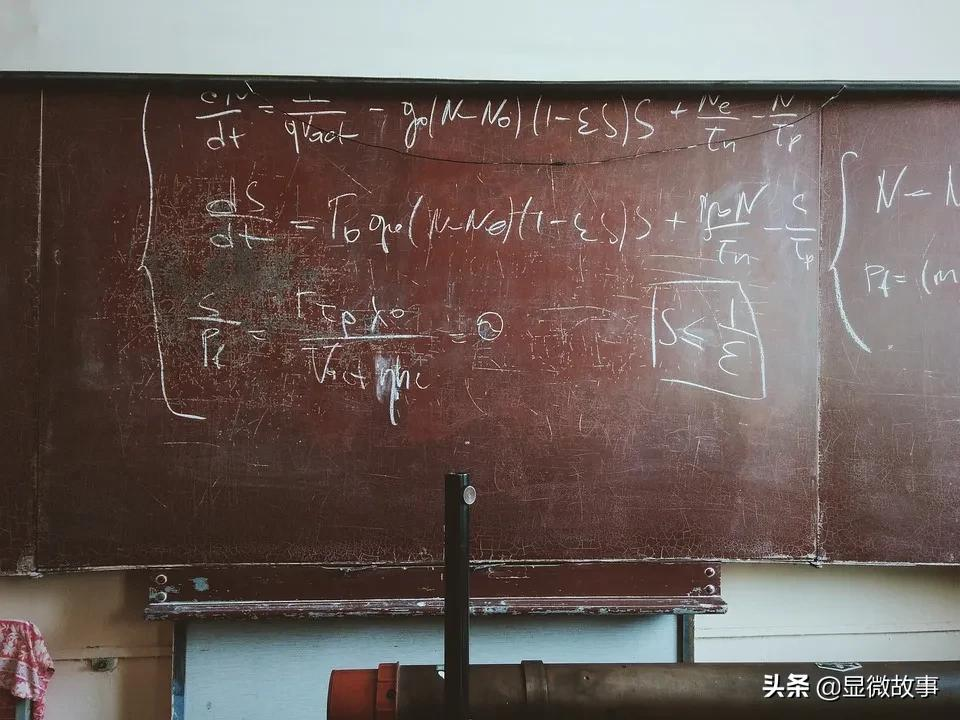 dN/dt = I/qVact - g₀(N-N₀)(1-εS)S + Ne/τn - N/τp
dS/dt = Γ₀g₀(N-N₀)(1-εS)S + N/τn - S/τp
S/Pf = Γτpλ₀/Vactηhc =
S ≤ 1/ε
N = N
Pf = (m
头条 @显微故事